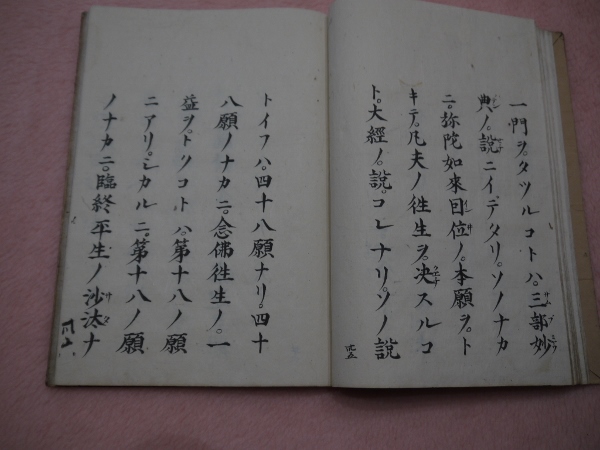 一門ヲ。タツルコトハ。三部妙
典ノ。説ニイデタリ。ソノナカ
ニ。弥陀如來因位ノ。本願ヲ。ト
キテ。凡夫ノ徃生ヲ。决スルコ
ト。大經ノ。説。コレナリ。ソノ説
四五
トイフハ。四十八願ナリ。四十
八願ノナカニ。念佛徃生ノ。一
益ヲ。トクコトハ。第十八ノ願
ニアリ。シカルニ。第十八ノ願
ノナカニ。臨終平生ノ沙汰ナ